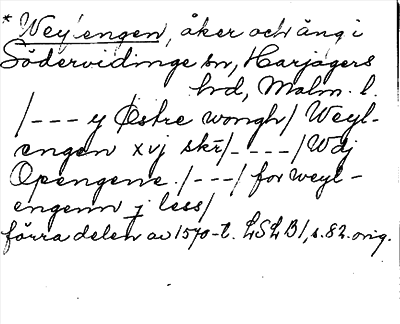 * Wey engen, åker och äng i
Södervidinge sn, Harjagers
hd, Malm. l.
/--- y Østre wongh/ Weyl-
engen xvj skr/_ ---/ Wdj
Opengene. /---/ for weyl-
engenn j less/
förra delen av 1570-t. LSLB1, s. 82. orig.